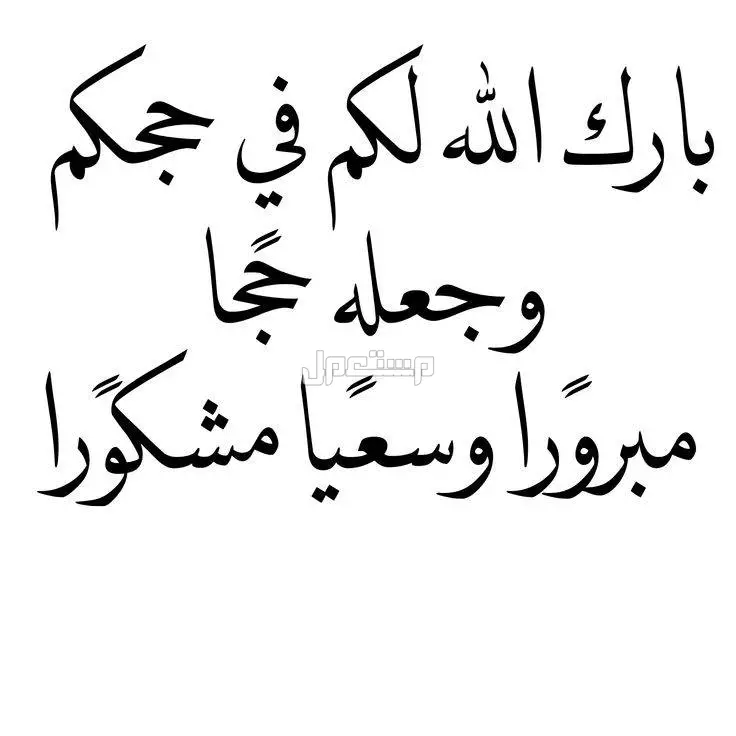 بارك الله لكم في حجكم
وجعله حجًا
مستعمل
مبرورًا وسعيًا مشكورًا